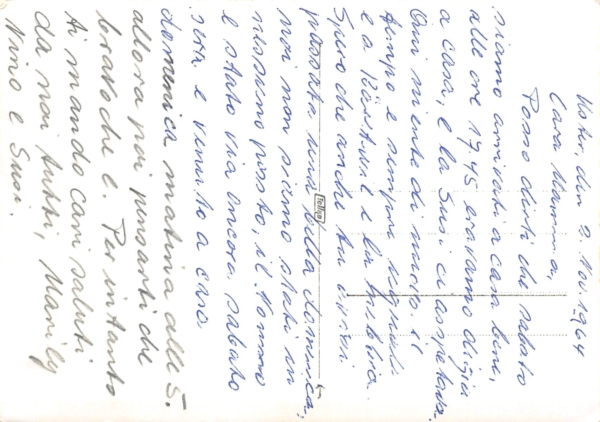 Uster, den 2. Nov 1964
Cara Mamma,
Posso dirti che sabato
siamo arrivati a casa bene,
alle ore 17.45 eravamo già
a casa, e la Susi ci aspetava.
Qui niente di nuovo. il
tempo e sempre uguale
e a
Spero che anche tu
passata una bella domenica,
noi non siamo stati in
nessuno posto, il Nonno
e stato via ancora sabato
sera e venuto a casa
domenica matina alle 5.
allora poi pensarti che
bravo che è. Per intanto
ti mando cari saluti
da noi tutti, Marily
Nino e Susi.